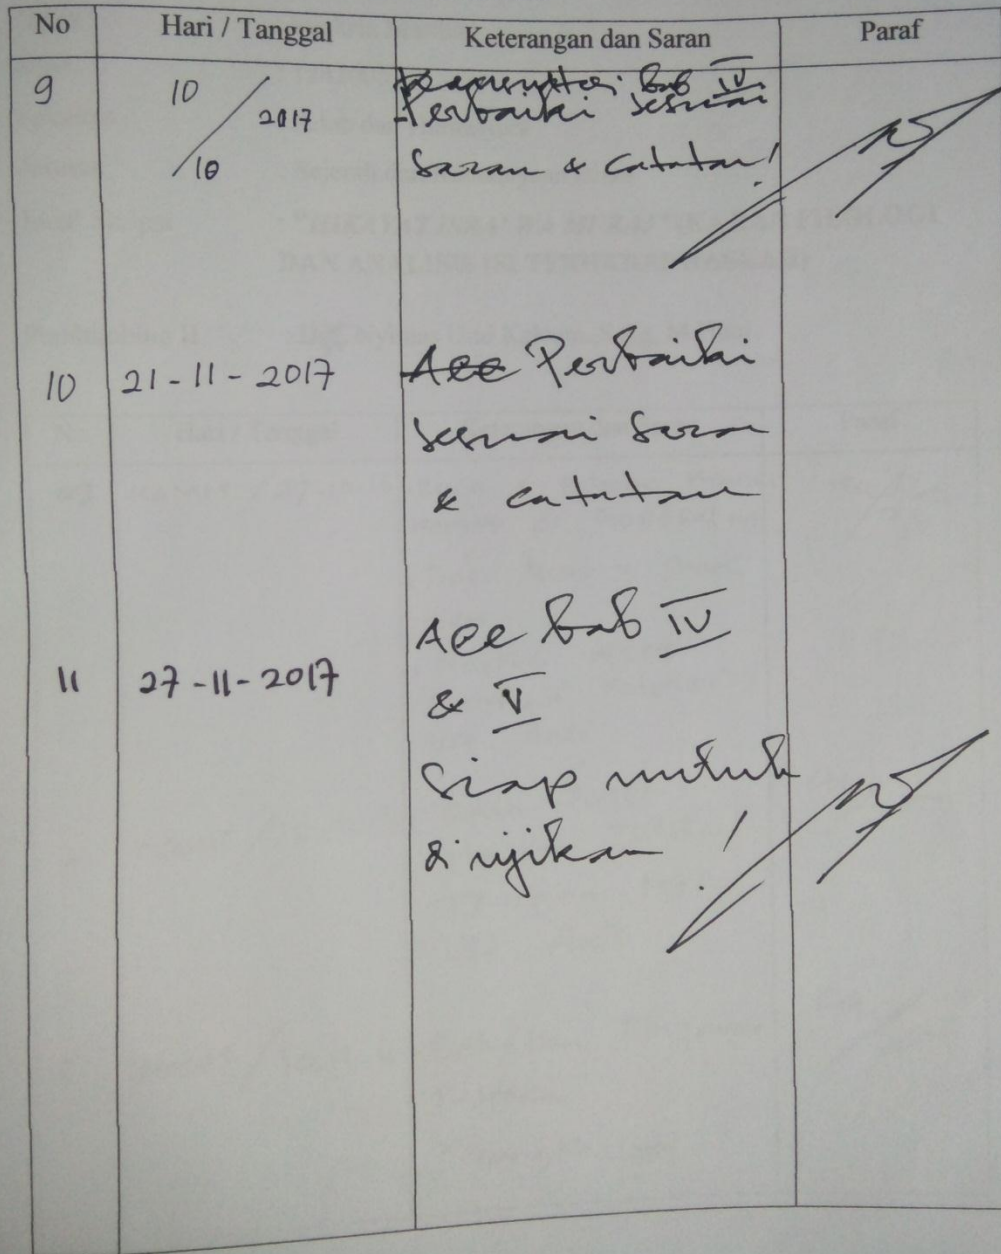 No Hari / Tanggal Keterangan dan Saran Paraf
9 10 / 10 2017 Bab IV
Perbaiki sesuai
saran & catatan!
10 21-11-2017 Acc Perbaiki
sesuai saran
& catatan
11 27-11-2017 Acc bab IV
& V
Siap untuk
diujikan !